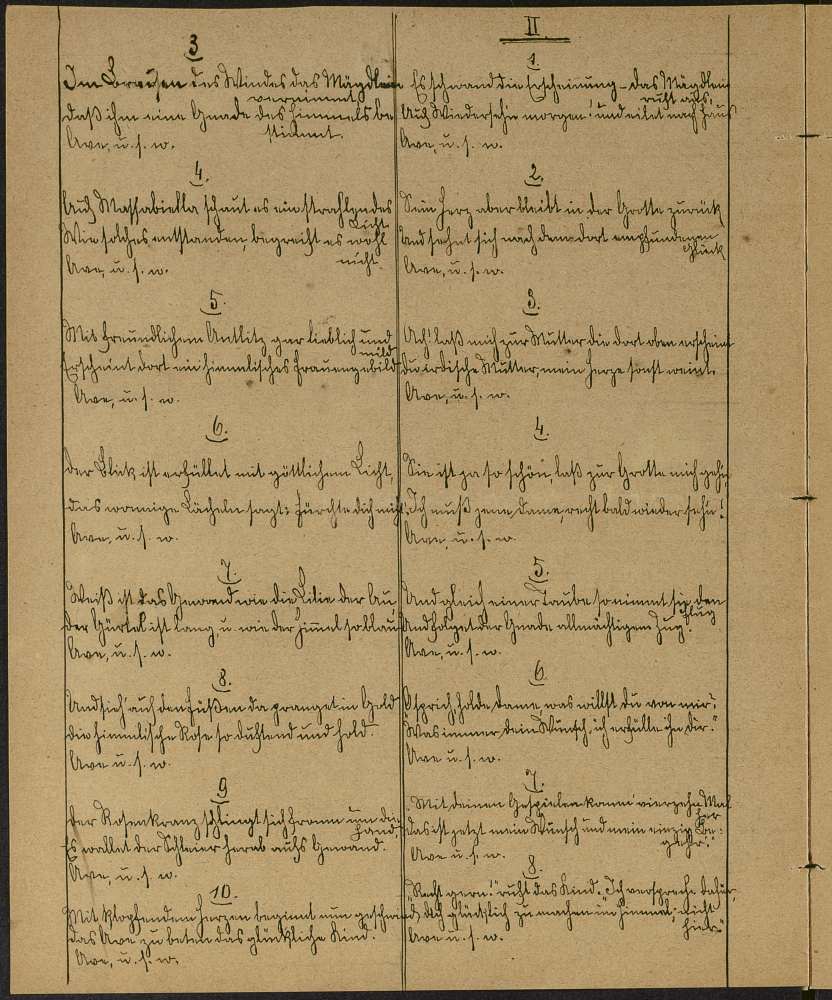 3
Im Brausen des Windes das Mägdlein
vernimmt
daß ihm eine Gnade des Himmels be
stimmt.
Ave, u. s. w.
4.
Auf Massabiella schaut es ein strahlendes
Licht
Wie solches entstanden, begreift es wohl
nicht.
Ave, u. s. w.
5.
Mit freundlichem Antlitz gar lieblich und
mild
Erscheint dort ein himmlisches Frauengebild
Ave, u. s. w.
6.
Der Blick ist erfüllet mit göttlichem Licht,
das wonnige Lächeln sagt: Fürchte dich nicht.
Ave, u. s. w.
7.
Weiß ist das Gewand wie die Lilie der Au,
Der Gürtel ist lang u. wie der Himmel so blau
Ave, u. s. w.
8.
Und sieh' auf den Füßen da pranget in Gold
die himmlische Rose so duftend und hold.
Ave u. s. w.
9
Der Rosenkranz schlingt sich fromm um die
Hand,
Es wallet der Schleier herab aufs Gewand.
Ave, u. s. w.
10.
Mit klopfendem Herzen beginnt nun geschwind
das Ave zu beten das glückliche Kind.
Ave, u. s. w.
II.
1.
Es schwand die Erscheinung – das Mägdlein
ruft aus,
Auf Wiedersehn morgen! und eilet nach Haus
Ave, u. s. w.
2.
Sein Herz aber bleibt in der Grotte zurück
Und sehnt sich nach dem dort empfundenen
Glück
Ave, u. s. w.
3.
Ach! laß mich zur Mutter die dort oben erscheint
du irdische Mutter, mein Herze sonst weint.
Ave, u. s. w.
4.
Sie ist ja so schön, laß zur Grotte mich gehn
Ich muß jene Dame, recht bald wieder sehn!
Ave, u. s. w.
5.
Und gleich einer Taube so nimmt sie den
Flug
Und folget der Gnade allmächtigem Zug.
Ave, u. s. w.
6
O sprich, holde Dame, was willst du von mir?
"Was immer dein Wunsch, ich erfülle ihn dir."
Ave u. s. w.
7.
"Mit deinen Gespielen komm' vierzehn Mal
her
das ist jetzt mein Wunsch und mein einzig Be-
gehr."
Ave u. s. w.
8.
"Recht gern!" ruft das Kind. "Ich verspreche dafür,
dich glücklich zu machen im Himmel, nicht
hier."
Ave u. s. w.